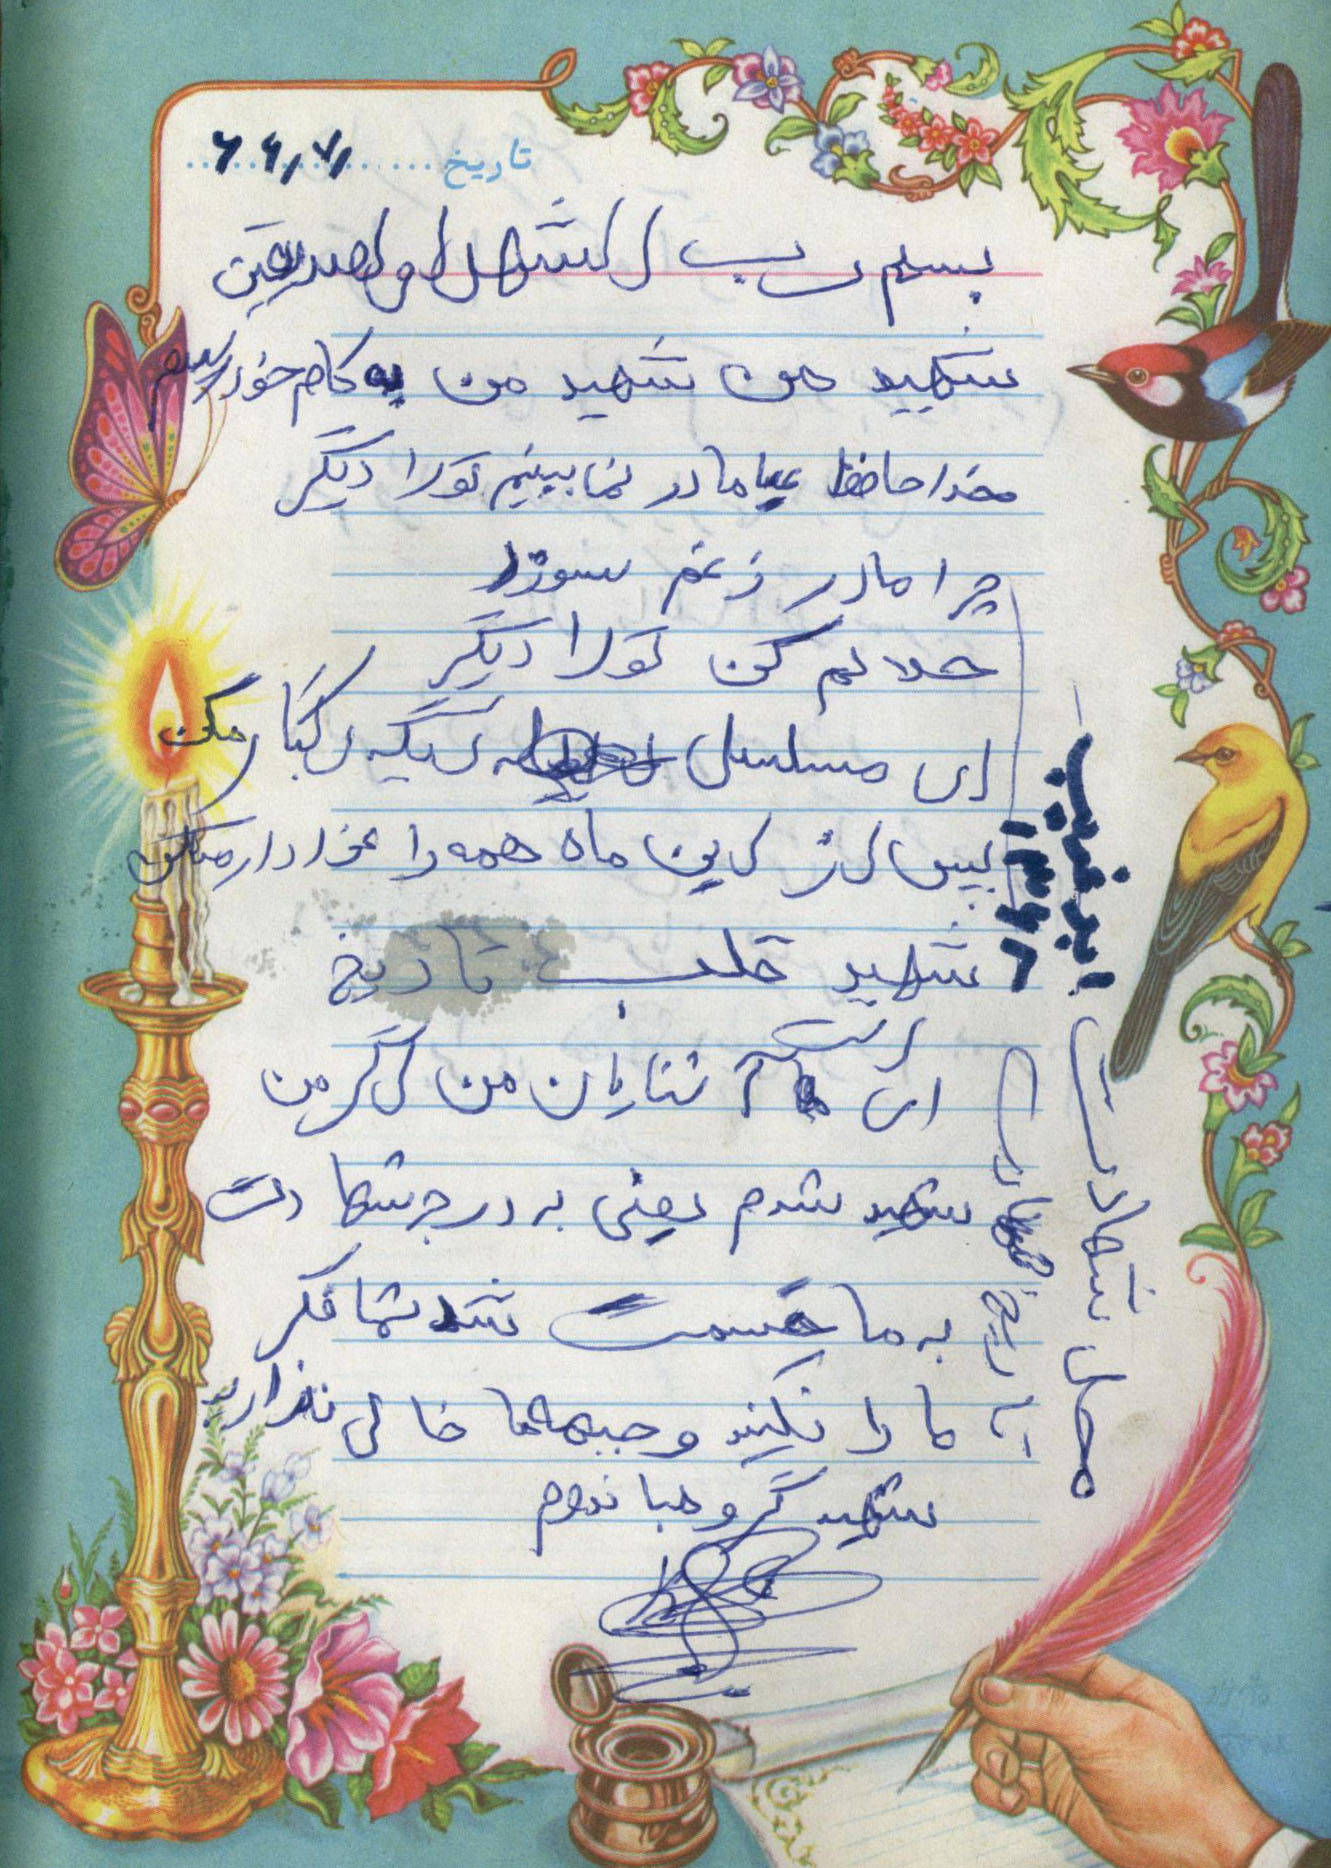 تاریخ ۶۶/۷/۱
بسم رب الشهدا و الصدیقین
شهید من شهید من به کام خود رسیدم
خداحافظ بیا مادر نمابینیم تو را دیگر
چرا مادر ز غم سوزد
حلالم کن تو را دیگر
ای مسلسل گریه رگبار مکن
پس از این ماه همه را عزادار مکن
شهید قلب تاریخ است
ای آشنایان من اگر من
شهید شدم یعنی به درجه شهادت
به ما قسمت شد شما فکر
ما را نکنید و جبهه‌ها خالی نذارید
شهید گروهبا
محل شهادت
تاریخ شهادت